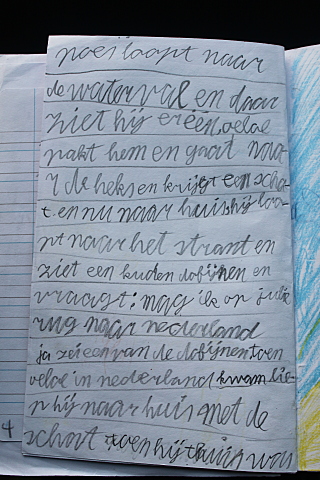 poes loopt naar
de waterval en daar
ziet hij er één, oeloe
pakt hem en gaat naa
r de heks en krijgt een scha-
t. en nu naar huis hij loo-
pt naar het strant en
ziet een kuden dolfijnen en
vraagt: mag ik op jullie
rug naar nederland
ja zei een van de dolfijnen toen
oeloe in nederland kwam lie-
p hij naar huis met de
schat toen hij thuis was
4